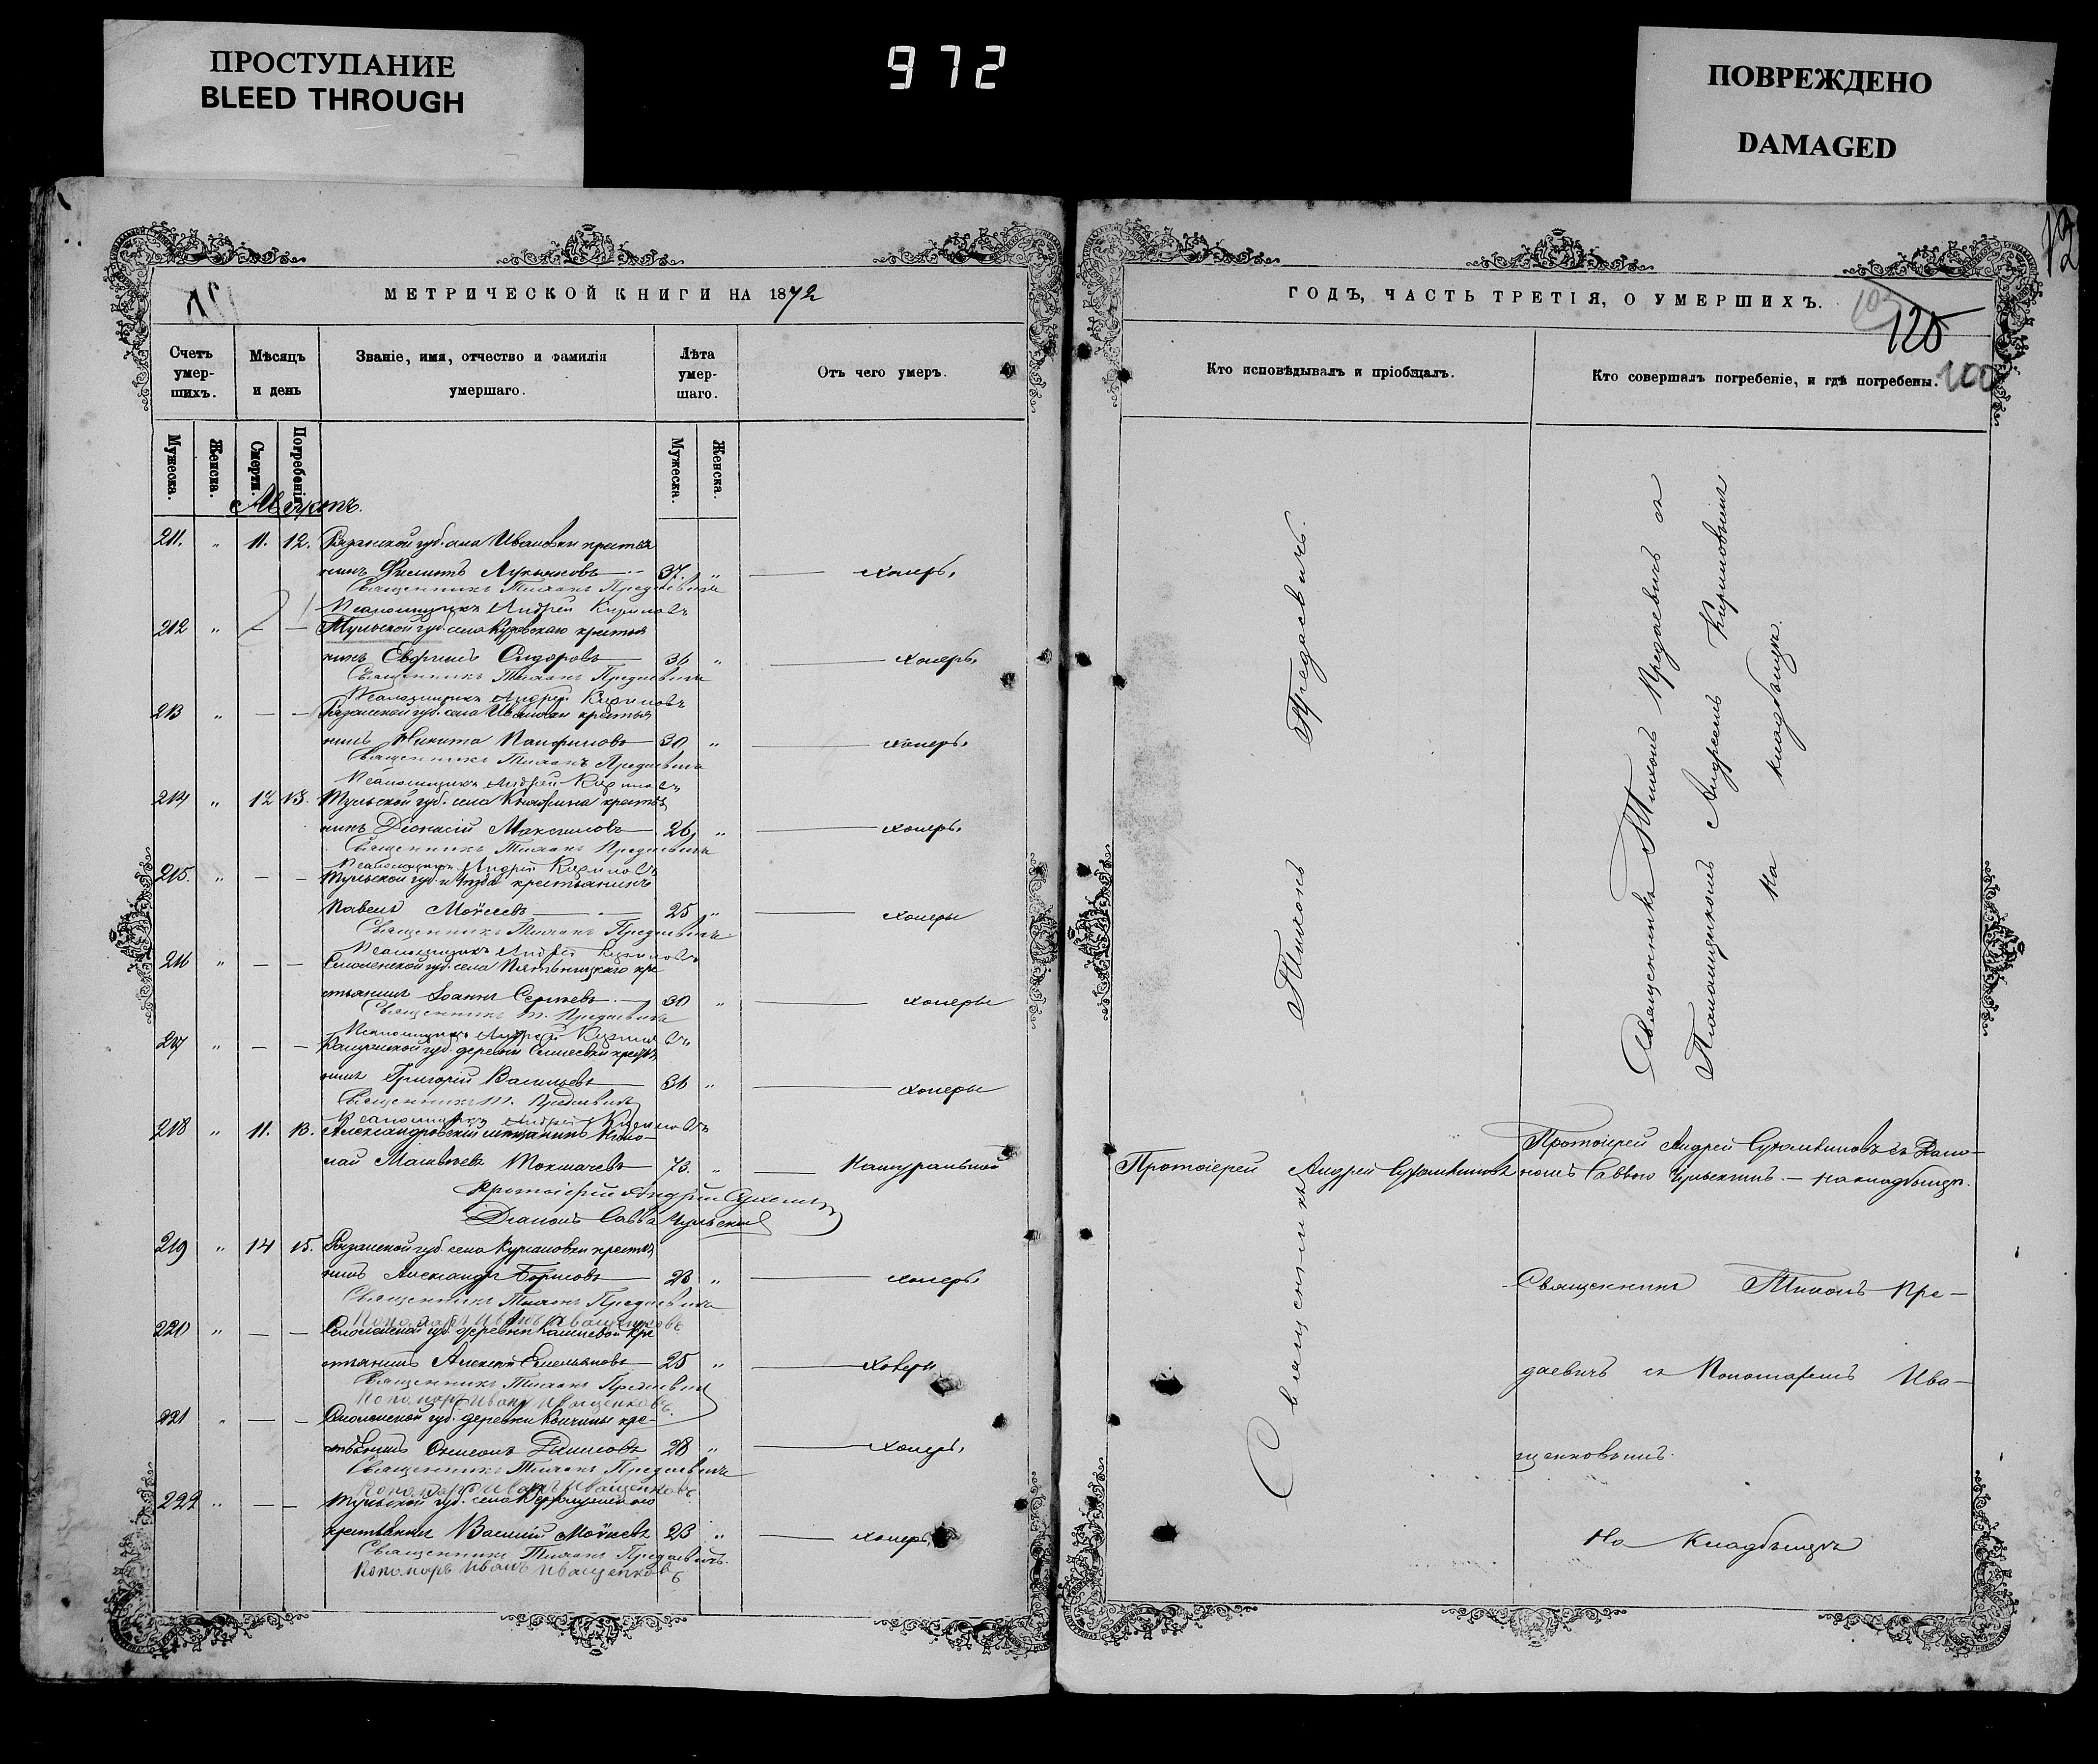 ПРОСТУПАНИЕ
BLEED THROUGH
972
ПОВРЕЖДЕНО
DAMAGED
МЕТРИЧЕСКОЙ КНИГИ НА 1872
Счетъ умер-шихъ.
Мѣсяцъ и день
Званіе, имя, отчество и фамилія умершаго.
Лѣта умер-шаго.
Отъ чего умеръ.
Мужеска.
Женска.
Смерти.
Погребенія.
Мужеска.
Женска.
Августъ.
211. " 11. 12. Рязанской губ. села Ивановки крестья
нинъ Филиппъ Лукьяновъ 37. " холеры
Священникъ Тихонъ Предаевичъ
Псаломщикъ Андрей Кириловъ
212 " — — Тульской губ. села крестья
нинъ Евфимъ Сидоровъ 36 " холеры
Священникъ Тихонъ Предаевичъ
Псаломщикъ Андрей Кириловъ
213 " — — Рязанской губ. села Ивановки крестья
нинъ Никита Панфиловъ 30 " холеры
Священникъ Тихонъ Предаевичъ
Псаломщикъ Андрей Кириловъ
214 " 12 13. Тульской губ. села крестья
нинъ Діонисій Максимовъ 26, " холеры
Священникъ Тихонъ Предаевичъ
Псаломщикъ Андрей Кириловъ
215. " — — Тульской губ. и уѣзда крестьянинъ
Павелъ Моѵсеевъ 25 " холеры
Священникъ Тихонъ Предаевичъ
Псаломщикъ Андрей Кириловъ
216 " — — Смоленской губ. села Пятницкаго кре
стьянинъ Іоаннъ Сергѣевъ 30 " холеры
Священникъ Т. Предаевичъ
Псаломщикъ Андрей Кириловъ
217 " — — Калужской губ. деревни крестья
нинъ Григорій Васильевъ 31 " холеры
Священникъ Т. Предаевичъ
Псаломщикъ Андрей Кириловъ
218 " 11. 13. Александровскій мѣщанинъ Нико-
лай Матвѣевъ Токмачевъ 73. " Натуральной
Протоіерей Андрей
Діаконъ Савва
219 " 14 15. Рязанской губ. села крестья
нинъ Александръ Борисовъ 23 " холеры
Священникъ Тихонъ Предаевичъ
Пономарь Иванъ Иващенковъ
220 " — — Смоленской губ. деревни кре
стьянинъ Алексій Емельяновъ 25 " холеры
Священникъ Тихонъ Предаевичъ
Пономарь Иванъ Иващенковъ
221 " — — Смоленской губ. деревни кре-
стьянинъ Даниловъ 28 " холеры
Священникъ Тихонъ Предаевичъ
Пономарь Иванъ Иващенковъ
222 " — — Тульской губ. села
крестьянинъ Василій Моѵсеевъ 23 " холеры
Священникъ Тихонъ Предаевичъ.
Пономарь Иванъ Иващенковъ
ГОДЪ, ЧАСТЬ ТРЕТІЯ, О УМЕРШИХЪ.
103
120
100
Кто исповѣдывалъ и пріобщалъ.
Кто совершалъ погребеніе, и гдѣ погребены.
Священникъ Тихонъ Предаевичъ.
Священникъ Тихонъ Предаевичъ съ
Псаломщикомъ Андреемъ Кириловымъ
на кладбищѣ.
Протоіерей Андрей
Протоіерей Андрей съ Діако-
номъ Саввою — на кладбищѣ.
Священникъ Тихонъ Пре-
даевичъ съ Пономаремъ Ива-
щенковымъ.
На кладбищѣ